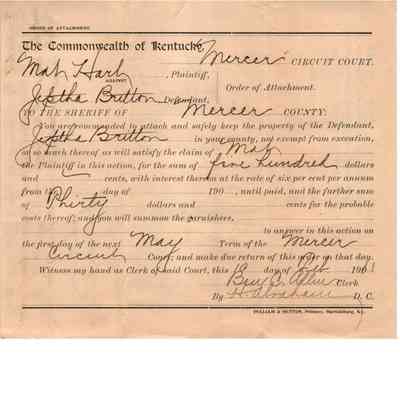 ORDER OF ATTACHMENT.
The Commonwealth of Kentucky, Mercer CIRCUIT COURT.
Plaintiff,
AGAINST Order of Attachment.
Jeptha Britton Defendant,
TO THE SHERIFF OF Mercer COUNTY:
You are commanded to attach and safely keep the property of the Defendant,
Jeptha Britton in your county, not exempt from execution,
or so much thereof as will satisfy the claim of
the Plaintiff in this action, for the sum of five hundred dollars
and cents, with interest thereon at the rate of six per cent per annum
from the day of 190 , until paid, and the further sum
of Thirty dollars and cents for the probable
costs thereof; and you will summon the garnishees,
to answer in this action on
the first day of the next May Term of the Mercer
Circuit Court; and make due return of this order on that day.
Witness my hand as Clerk of said Court, this day of 190
Clerk
By D. C.
PULLIAM & HUTTON, Printers, Harrodsburg, Ky.